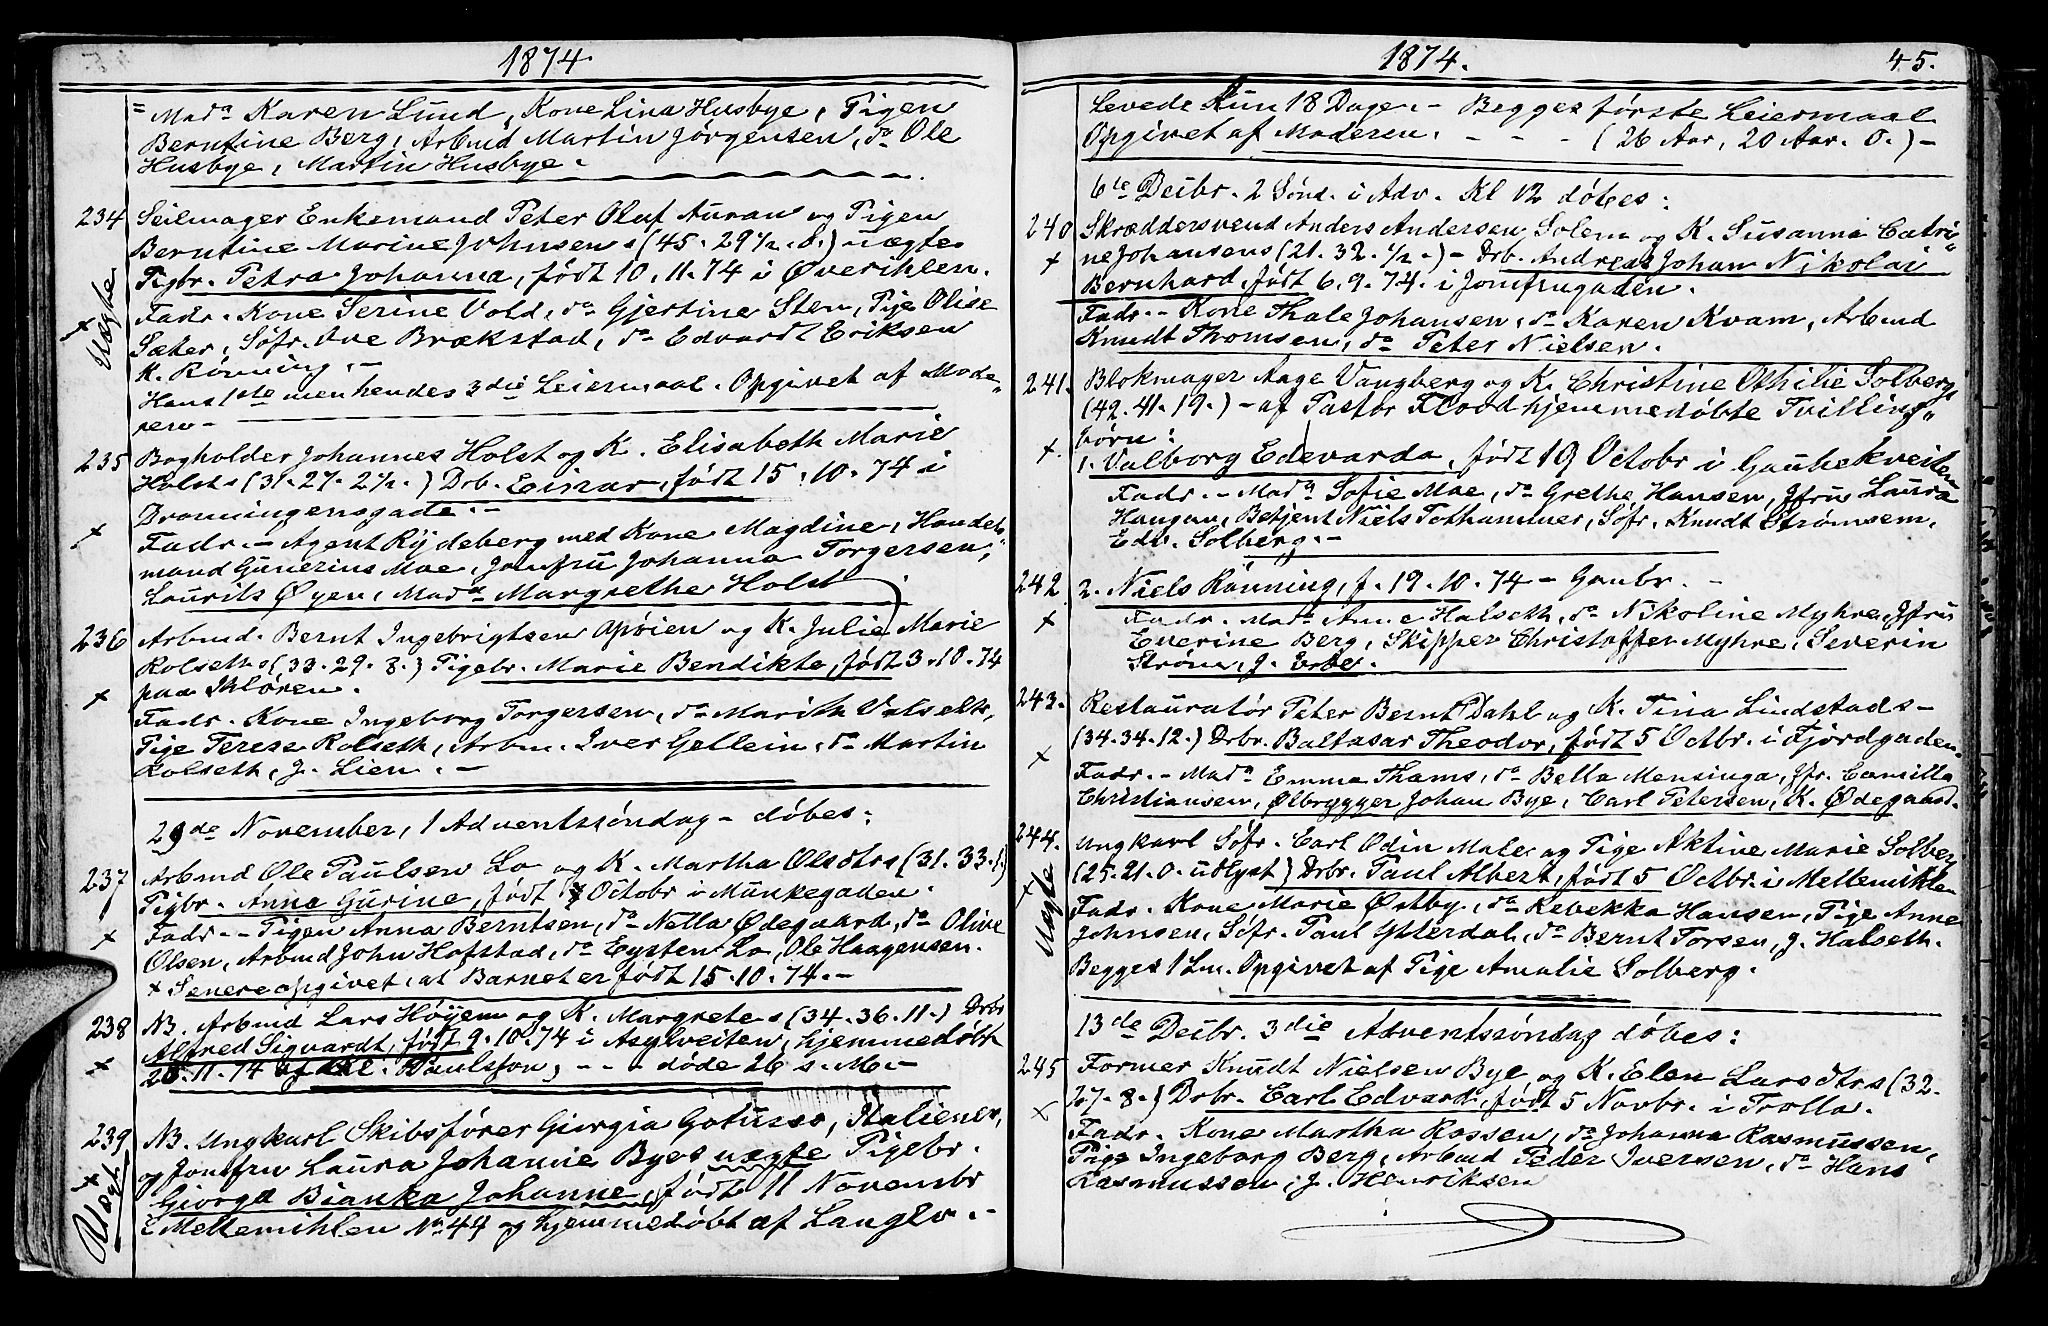 1874
= Mad. Karen Lund, Kone Lina Husbye, Pigen
Berntine Berg, Arbmd Martin Jørgensen, do Ole
Husbye, Martin Husbye.
234 Seilmager Enkemand Peter Oluf Auran og Pigen
Berntine Marine Johnsens (45. 29 1/2. 8.) uægte
Pigbr. Petra Johanna, født 10.11.74 i Øverihlen.
Uægte
Fadr. Kone Serine Vold, do Gjertine Sten, Pige Olise
Sæter, Søfr. Ove Brækstad, do Edvardt Eriksen
K. Rønning.-
Hans 1ste men hendes 3die Leiermaal. Opgivet af Mode„
ren -
235 Bogholder Johannes Holst og K. Elisabeth Marie
Holsts (31. 27. 2 1/2.) Drb. Einar, født 15.10.74 i
Dronningensgade.-
x Fadr. - Agent Rydeberg med Kone Magdine, Handels„
mand Gunerius Moe, Jomfru Johanna Torgersen,
Laurits Øyen, Mada Margrethe Holst
236 Arbmd. Bernt Ingebrigtsen Opøien og K. Julie Marie
Rolseths (33. 29. 8.) Pigebr. Marie Bendikte, født 3.10.74
x paa Ihløren.
Fadr. Kone Ingeborg Torgersen, do Marith Valseth,
Pige Terese Rolseth, Arbm. Iver Gellein, do Martin
Rolseth, J. Lien. -
29de November, 1 Adventssøndag - døbes:
237 Arbmd Ole Paulsen Lo og K. Martha Olsdtrs (31. 33. 1.)
Pigbr. Anna Gurine, født Octobr i Munkegaden.
x Fadr. - Pigen Anna Berntsen, do Nella Ødegaard, do Olive
Olsen, Arbmd John Hofstad, do Eysten Lo, Ole Haagensen.
x Senere opgivet, at Barnet er født 15.10.74.-
238 NB. Arbmd Lars Høyem og K. Margretes (34. 36. 11.) Drbr
Alfred Sigvardt, født 9.10.74 i Asylveiten, hjemmedøbt
x .11.74 af Paulsson, - - - døde 26 s. M.-
239 NB. Ungkarl Skibsfører Giorgia Gotusso, Italiener,
x og Jomfru Laura Johanne Byes uægte Pigebr.
Uægt. Giorga Bianka Johanne, født 11 Novembr
i Mellemihlen No 44 og hjemmedøbt af Langlo.-
1874. 45.
Levede kun 18 Dage - Begges første Leiermaal
Opgivet af Moderen. - - - (26 Aar, 20 Aar. 0.) -
6te Decbr. 2 Sønd. i Adv. Kl 12 døbes:
240 Skræddersvend Anders Andersen Solem og K. Susanna Catri„
x ne Johansens (21. 32. 1/2.) - Drb. Andreas Johan Nikolai
Bernhard, født 6.9.74. i Jomfrugaden.
Fadr.- Kone Thale Johansen, do Karen Kvam, Arbmd
Knudt Thomsen, do Peter Nielsen.
241. Blokmager Aage Vangberg og K. Christine Othilie Solberg
(42. 41. 19.) - af Pastor Flood hjemmedøbte Tvilling„
x. børn:
1. Valborg Edevarda, født 19 Octobr i Gaubekveiten
Fadr. - Mada Sofie Moe, do Grethe Hansen, Jfru Laura
Haugan, Betjent Niels Tothammer, Søfr. Knudt Strømsem,
Edv. Solberg.-
242 2. Niels Rønning, f. 19.10.74 - Gaubr. -
x Fadr. Mada Anne Halseth, do Nikoline Myhre, Jfru
Everine Berg, Skipper Christoffer Myhre, Severin
Strøm, J. Erbe.
243. Restauratør Peter Bernt Dahl og K. Tina Lindstads -
(34. 34. 12.) Drbr. Baltasar Theodor, født 5 Octbr. i Fjordgaden.
x Fadr. - Mada Emma Thams, do Bella Mensinga, Jfr. Camilla
Christiansen, Ølbrygger Johan Bye, Carl Petersen, K. Ødegaard.
244. Ungkarl Søfr. Carl Odin Male og Pige Aktine Marie Solberg
x (25. 21. 0. udlyst) Drbr. Paul Albert, født 5 Octbr. i Mellemihlen
Uægte Fadr. Kone Marie Østby, do Rebekka Hansen, Pige Anne
Johnsen, Søfr. Paul Ytterdal, do Bernt Torsen, J. Halseth.
Begges 1 Lm. Opgivet af Pige Amalie Solberg.
13de Decbr. 3die Adventssøndag døbes:
245 Former Knudt Nielsen Bye og K. Elen Larsdtrs (32.
x 27. 8.) Drbr. Carl Edvard, født 5 Novbr. i Trolla.
Fadr. Kone Martha Rossen, do Johanna Rasmussen,
Pige Ingeborg Berg, Arbmd Peder Iversen, do Hans
Rasmussen, J. Henriksen